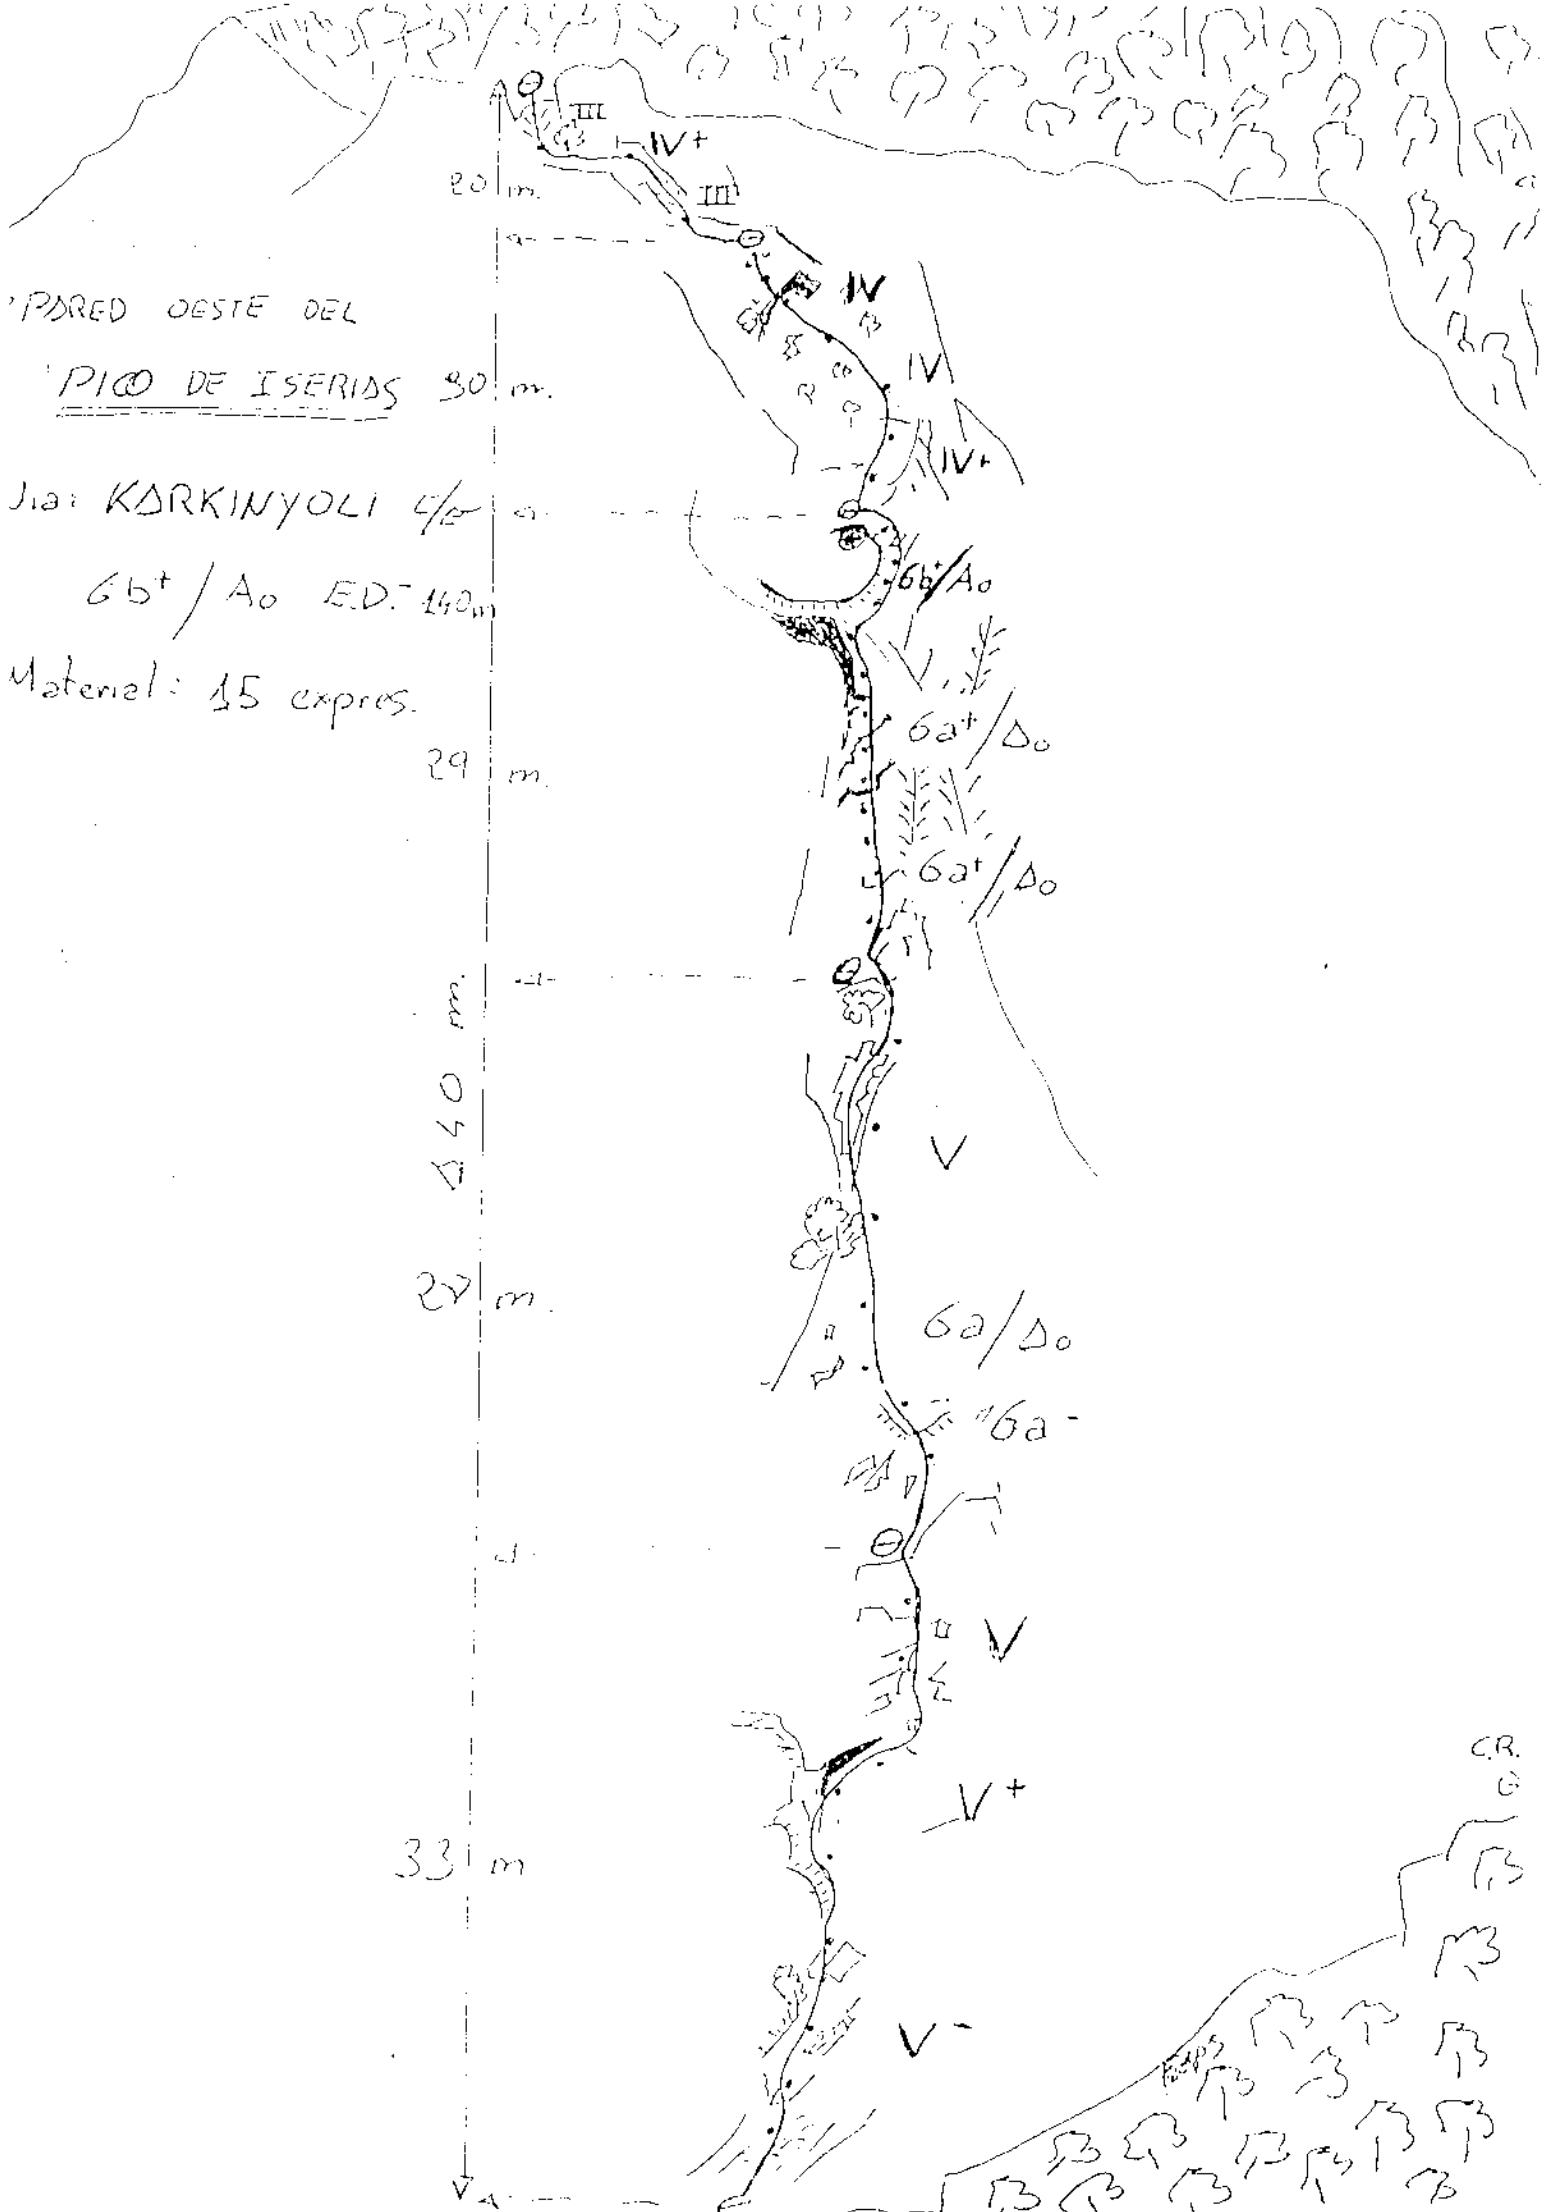 III
IV+
20 m.
III
IV
PARED OESTE DEL
PICO DE ISERIAS
30 m.
IV
IV+
Via: KARKINYOLI
6b+/A0 E.D.- 140m
6b+/A0
V
Material: 15 expres.
6a+/A0
29 m.
6a+/A0
140 m.
V
6a/A0
6a-
V
C.R.
V+
33 m
V-